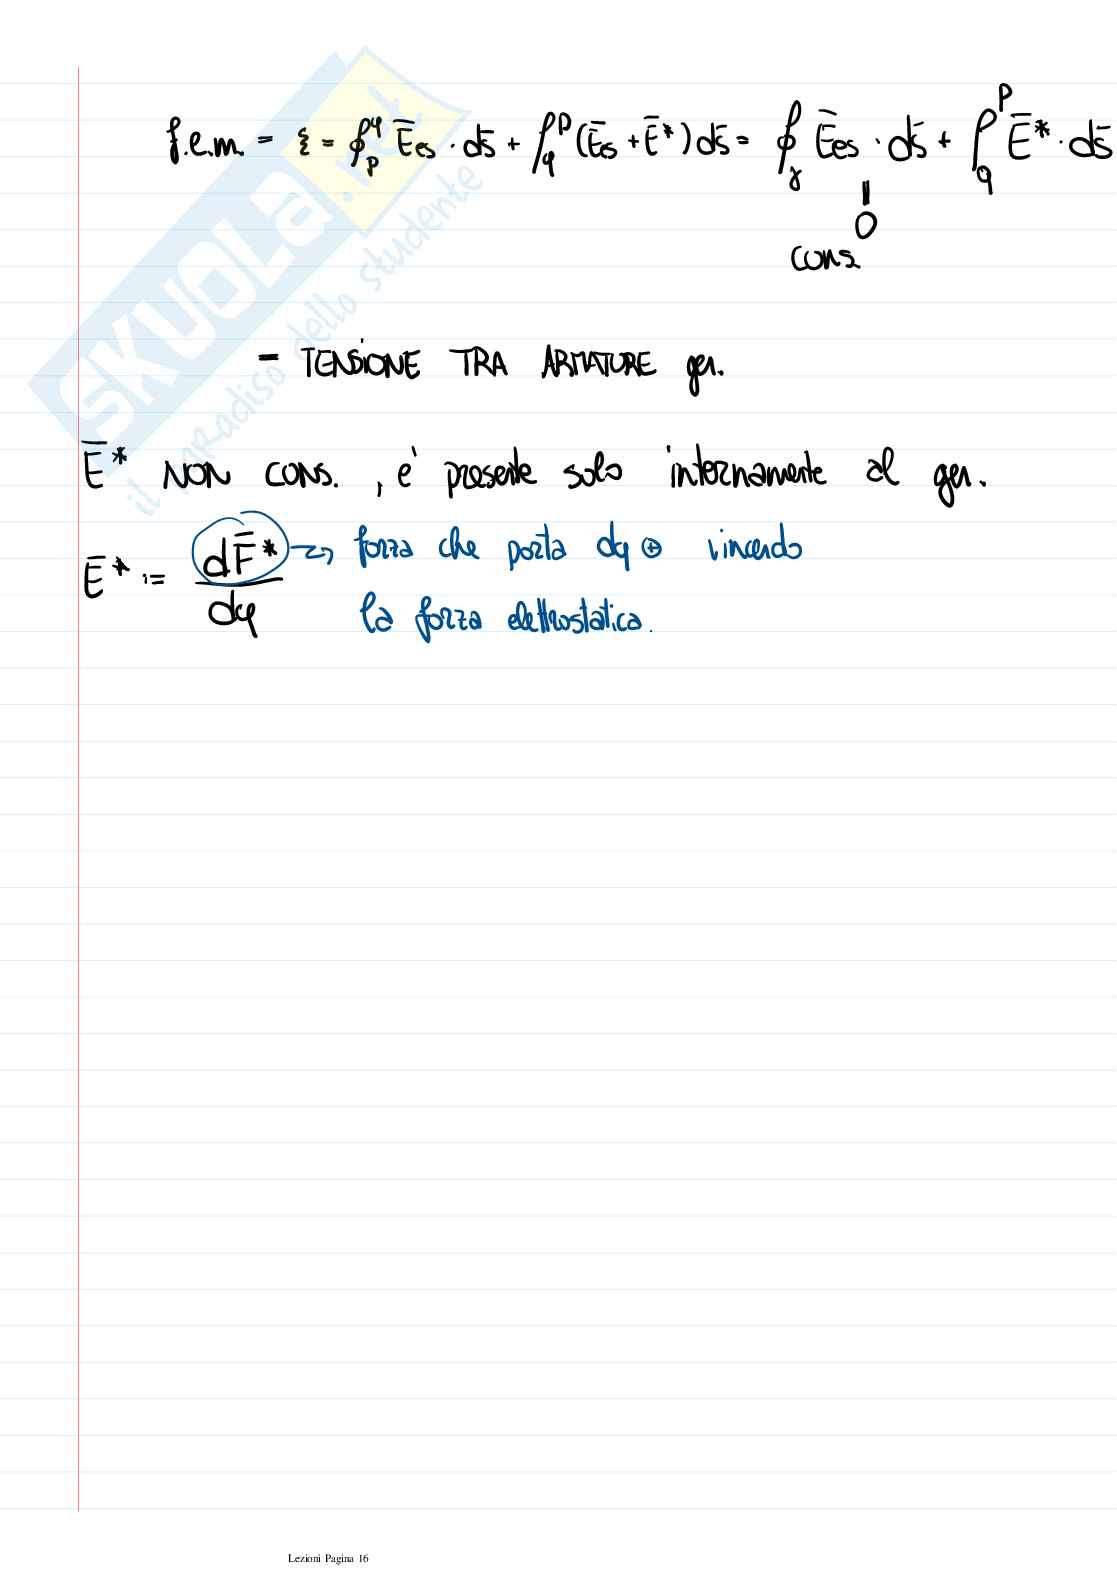 f.e.m. = ℰ = ∮_p^q Ēes · ds̄ + ∫_q^p (Ēes + Ē*) ds̄ = ∮_γ Ēes · ds̄ + ∫_q^p Ē* · ds̄
||
0
cons
= TENSIONE TRA ARMATURE gen.
Ē* NON CONS., è presente solo internamente al gen.
Ē* := dF̄* / dq → forza che porta dq ⊕ vincendo
la forza elettrostatica.
SKUOLA.net
il paradiso dello studente
Lezioni Pagina 16